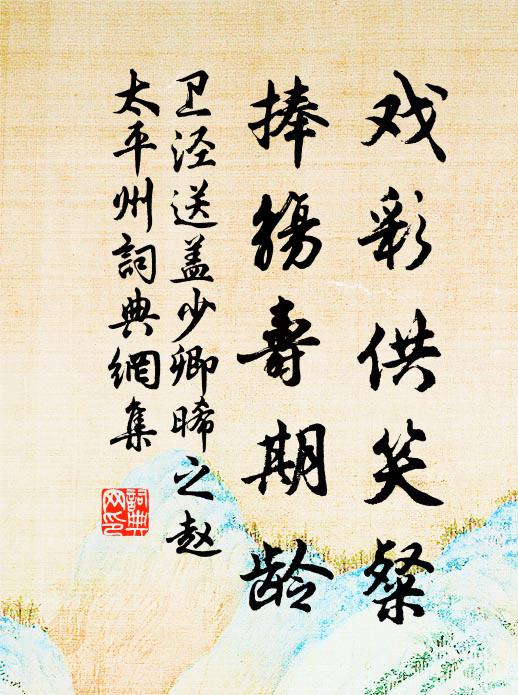 戏彩供笑粲
捧觞寿期龄
卫泾送盖少卿晞之赵
太平州詞典網集
詞典網印